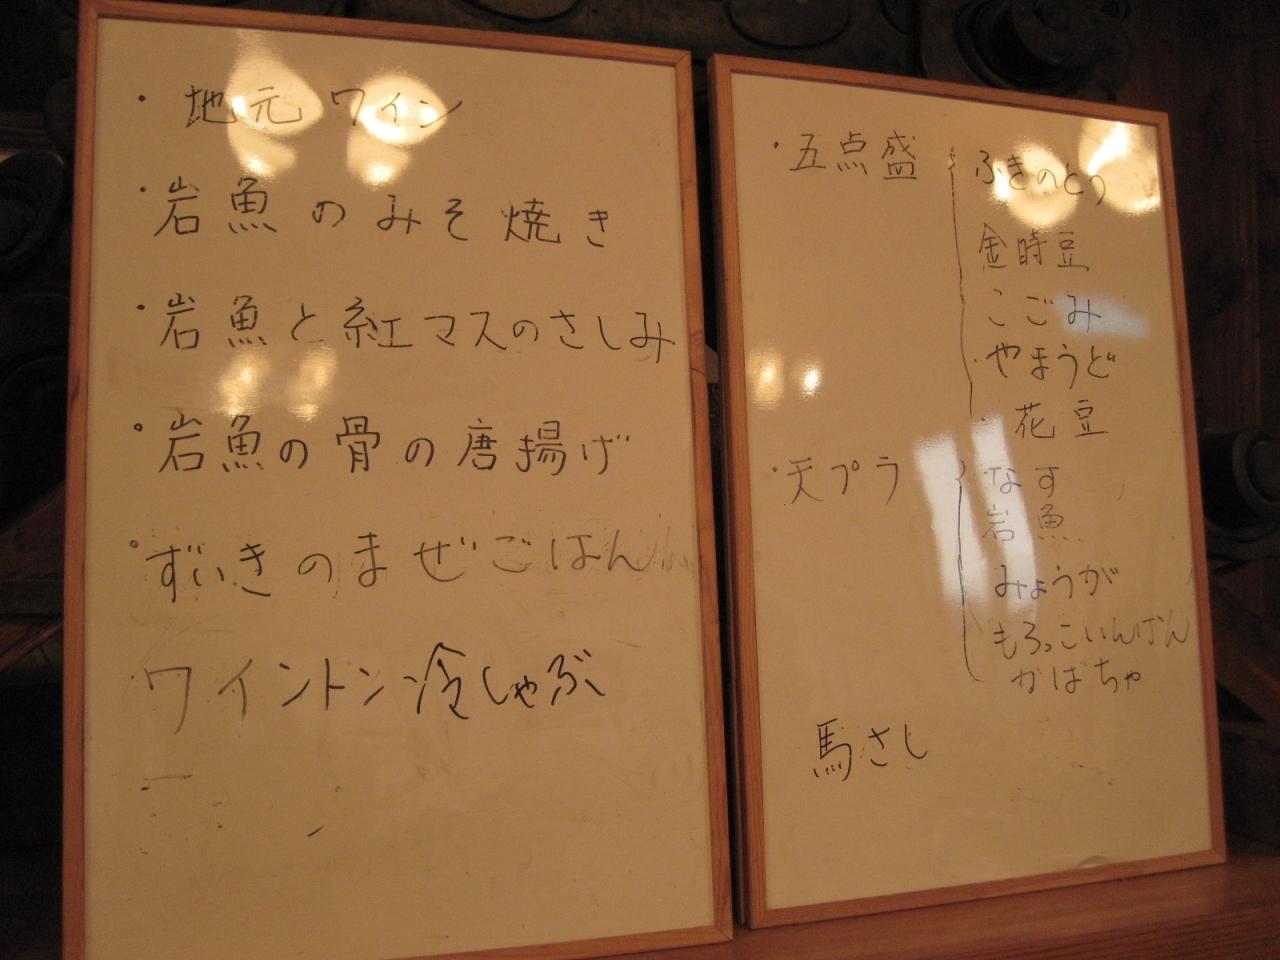 ・地元ワイン
・岩魚のみそ焼き
・岩魚と紅マスのさしみ
・岩魚の骨の唐揚げ
・ずいきのまぜごはん
ワイントン冷しゃぶ
・五点盛 ふきのとう
金時豆
こごみ
・やまうど
・花豆
・天プラ なす
岩魚
みょうが
もろっこいんげん
かばちゃ
馬さし